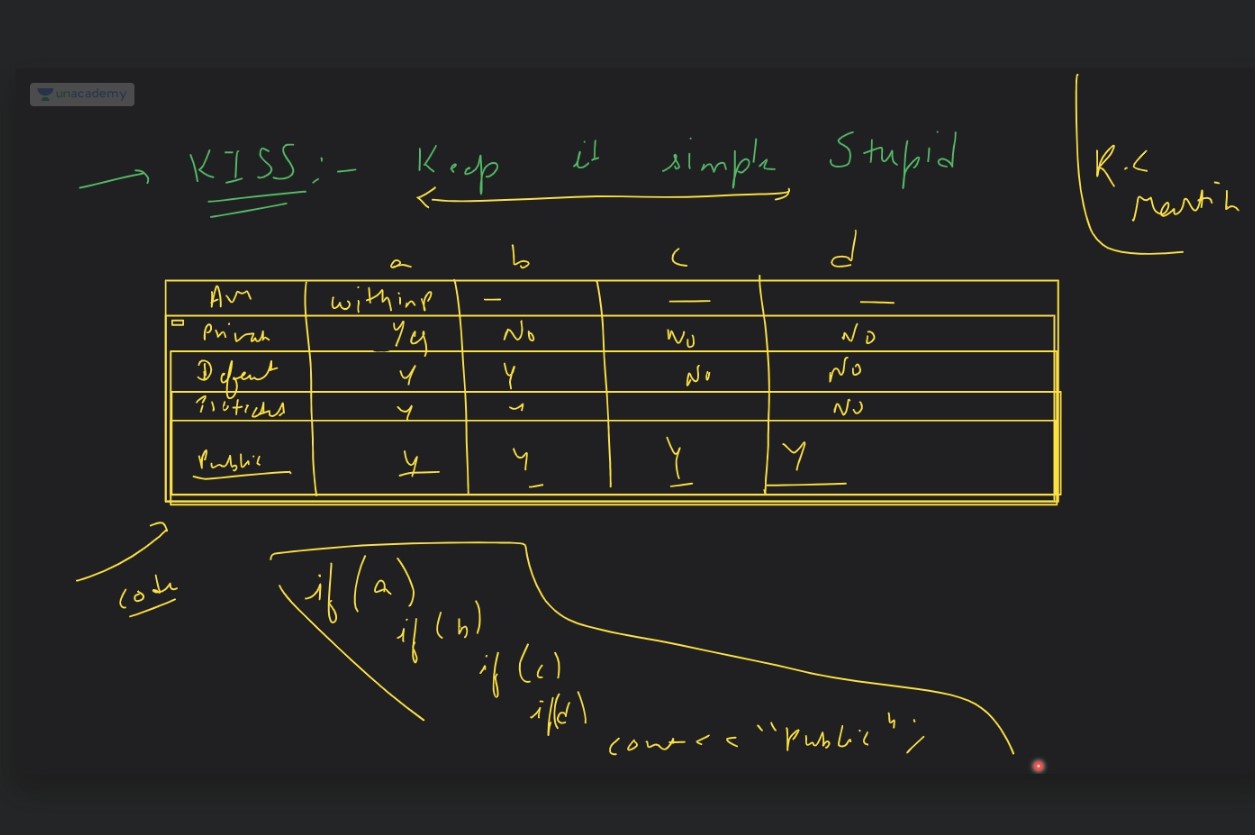 unacademy
→ KISS :- Keep it simple Stupid
R.C
Martin
a b c d
Am within p — — —
Private Yes No No No
Default Y Y No No
Protected Y Y No
Public Y Y Y Y
code
if (a)
if (b)
if (c)
if(d)
cout << "public";